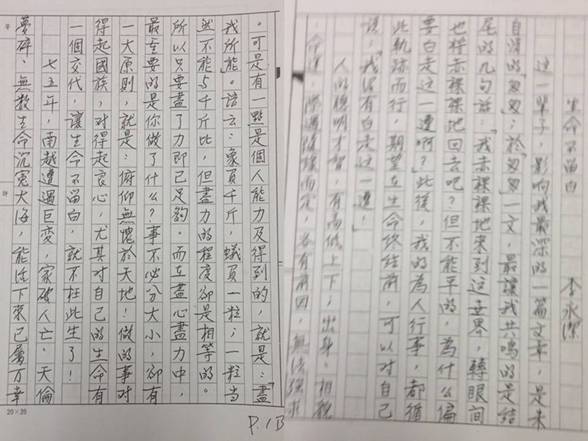 生命不留白 李永潔
這一輩子，影响我最深的一篇文章，是朱
自清的「匆匆」；於「匆匆」一文，最讓我共鳴的是結
尾的几句話：「我赤裸裸地來到這世界，轉眼間
也將赤裸裸地回去吧？但不能平的，為什么偏
要白走這一遭啊？」此後，我的為人行事，都循
此軌跡而行，期望在生命終結前，可以對自己
說：「我沒有白走這一遭」。
人的聰明才智，有高低上下，出身、相貌
、命運，而定，各有前因，無法強求
。可是有一點是個人能力及得到的，就是：「盡
我所能」。諺云：象負千斤，蟻負一粒；一粒當
然不能与千斤比，但盡力的程度卻是相等的。
所以只要盡了力即已足夠。而在盡心盡力中，
最主要的是你做了什么？事不必分大小，卻有
一大原則，就是：俯仰無愧於天地！做的事對
得起國族，對得起良心，尤其對自己的生命有
一個交代，讓生命不留白，就不枉此生了！
七五年，南越遭遇巨變，家破人亡、天倫
夢碎、無數生命沉冤大海，能活下來已屬万幸
20×20
P.1B